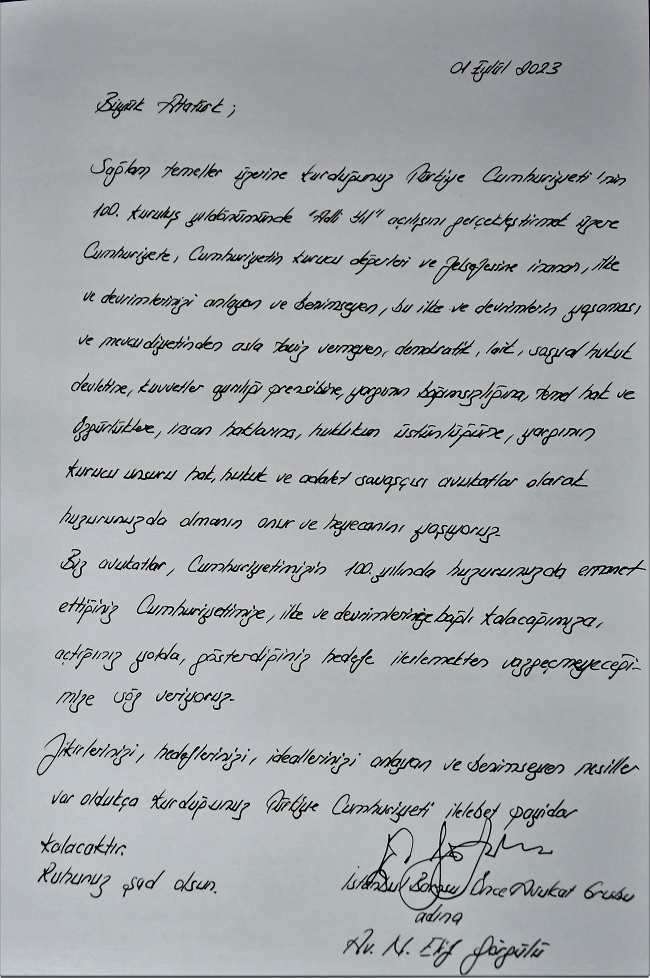 01 Eylül 2023
Büyük Atatürk ;
Sağlam temeller üzerine kurduğunuz Türkiye Cumhuriyeti'nin
100. kuruluş yıldönümünde "Adli Yıl" açılışını gerçekleştirmek üzere
Cumhuriyete, Cumhuriyetin kurucu değerleri ve felsefesine inanan, ilke
ve devrimlerinizi anlayan ve benimseyen, bu ilke ve devrimlerin yaşaması
ve mevcudiyetinden asla taviz vermeyen, demokratik, laik, sosyal hukuk
devletine, kuvvetler ayrılığı prensibine, yargının bağımsızlığına, temel hak ve
özgürlüklere, insan haklarına, hukukun üstünlüğüne, yargının
kurucu unsuru hak, hukuk ve adalet savaşçısı avukatlar olarak
huzurunuzda olmanın onur ve heyecanını yaşıyoruz.
Biz avukatlar, Cumhuriyetimizin 100. yılında huzurunuzda emanet
ettiğiniz Cumhuriyetimize, ilke ve devrimlerinize bağlı kalacağımıza,
açtığınız yolda, gösterdiğiniz hedefe ilerlemekten vazgeçmeyeceği-
mize söz veriyoruz.
Fikirlerinizi, hedeflerinizi, ideallerinizi anlayan ve benimseyen nesiller
var oldukça kurduğunuz Türkiye Cumhuriyeti ilelebet payidar
kalacaktır.
Ruhunuz şad olsun.
İstanbul Barosu Önce Avukat Grubu
adına
Av. N. Elif Görgülü